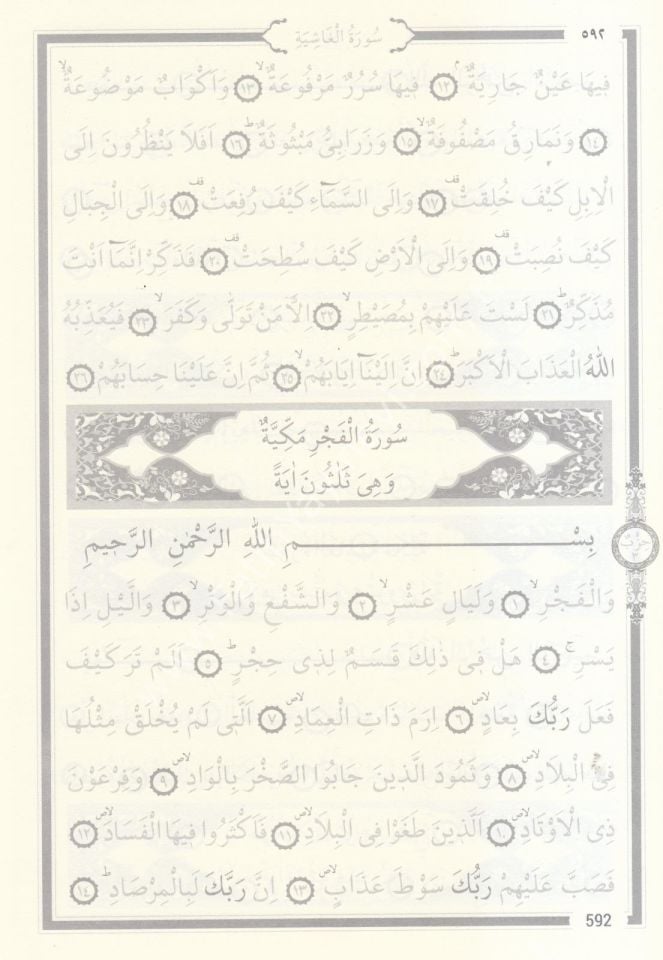 سُورَةُ الْغَاشِيَةِ
٥٩٢
فٖيهَا عَيْنٌ جَارِيَةٌۢ ﴿١٢﴾ فٖيهَا سُرُرٌ مَرْفُوعَةٌۙ ﴿١٣﴾ وَاَكْوَابٌ مَوْضُوعَةٌۙ
﴿١٤﴾ وَنَمَارِقُ مَصْفُوفَةٌۙ ﴿١٥﴾ وَزَرَابِيُّ مَبْثُوثَةٌؕ ﴿١٦﴾ اَفَلَا يَنْظُرُونَ اِلَى
الْاِبِلِ كَيْفَ خُلِقَتْࣞ ﴿١٧﴾ وَاِلَى السَّمَٓاءِ كَيْفَ رُفِعَتْࣞ ﴿١٨﴾ وَاِلَى الْجِبَالِ
كَيْفَ نُصِبَتْࣞ ﴿١٩﴾ وَاِلَى الْاَرْضِ كَيْفَ سُطِحَتْࣞ ﴿٢٠﴾ فَذَكِّرْ اِنَّمَٓا اَنْتَ
مُذَكِّرٌؕ ﴿٢١﴾ لَسْتَ عَلَيْهِمْ بِمُصَيْطِرٍۙ ﴿٢٢﴾ اِلَّا مَنْ تَوَلّٰى وَكَفَرَۙ ﴿٢٣﴾ فَيُعَذِّبُهُ
اللّٰهُ الْعَذَابَ الْاَكْبَرَؕ ﴿٢٤﴾ اِنَّ اِلَيْنَٓا اِيَابَهُمْۙ ﴿٢٥﴾ ثُمَّ اِنَّ عَلَيْنَا حِسَابَهُمْ ﴿٢٦﴾
سُورَةُ الْفَجْرِ مَكِّيَّةٌ
وَهِىَ ثَلٰثُونَ اٰيَةً
بِسْمِ اللّٰهِ الرَّحْمٰنِ الرَّحٖيمِ
وَالْفَجْرِۙ ﴿١﴾ وَلَيَالٍ عَشْرٍۙ ﴿٢﴾ وَالشَّفْعِ وَالْوَتْرِۙ ﴿٣﴾ وَالَّيْلِ اِذَا
يَسْرِۚ ﴿٤﴾ هَلْ فٖى ذٰلِكَ قَسَمٌ لِذٖى حِجْرٍؕ ﴿٥﴾ اَلَمْ تَرَ كَيْفَ
فَعَلَ رَبُّكَ بِعَادٍۙۖ ﴿٦﴾ اِرَمَ ذَاتِ الْعِمَادِۙۖ ﴿٧﴾ اَلَّتٖى لَمْ يُخْلَقْ مِثْلُهَا
فِى الْبِلَادِۙۖ ﴿٨﴾ وَثَمُودَ الَّذٖينَ جَابُوا الصَّخْرَ بِالْوَادِۙۖ ﴿٩﴾ وَفِرْعَوْنَ
ذِى الْاَوْتَادِۙۖ ﴿١٠﴾ اَلَّذٖينَ طَغَوْا فِى الْبِلَادِۙۖ ﴿١١﴾ فَاَكْثَرُوا فٖيهَا الْفَسَادَۙۖ ﴿١٢﴾
فَصَبَّ عَلَيْهِمْ رَبُّكَ سَوْطَ عَذَابٍۙۖ ﴿١٣﴾ اِنَّ رَبَّكَ لَبِالْمِرْصَادِؕ ﴿١٤﴾
592